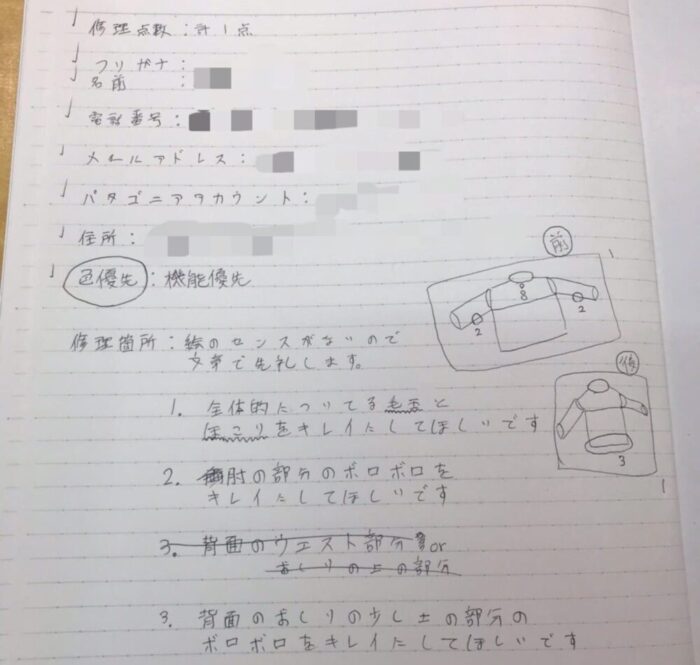 修理点数：計1点
フリガナ：
名前：
電話番号：
メールアドレス：
パタゴニアアカウント：
住所：
色優先：機能優先
前
1
8
2
2
修理箇所：絵のセンスがないので
文章で失礼します。
後
3
1
1. 全体的についてる毛玉と
ほこりをキレイにしてほしいです
2. 肘の部分のボロボロを
キレイにしてほしいです
3. 背面のウエスト部分or
おしりの上の部分
3. 背面のおしりの少し上の部分の
ボロボロをキレイにしてほしいです